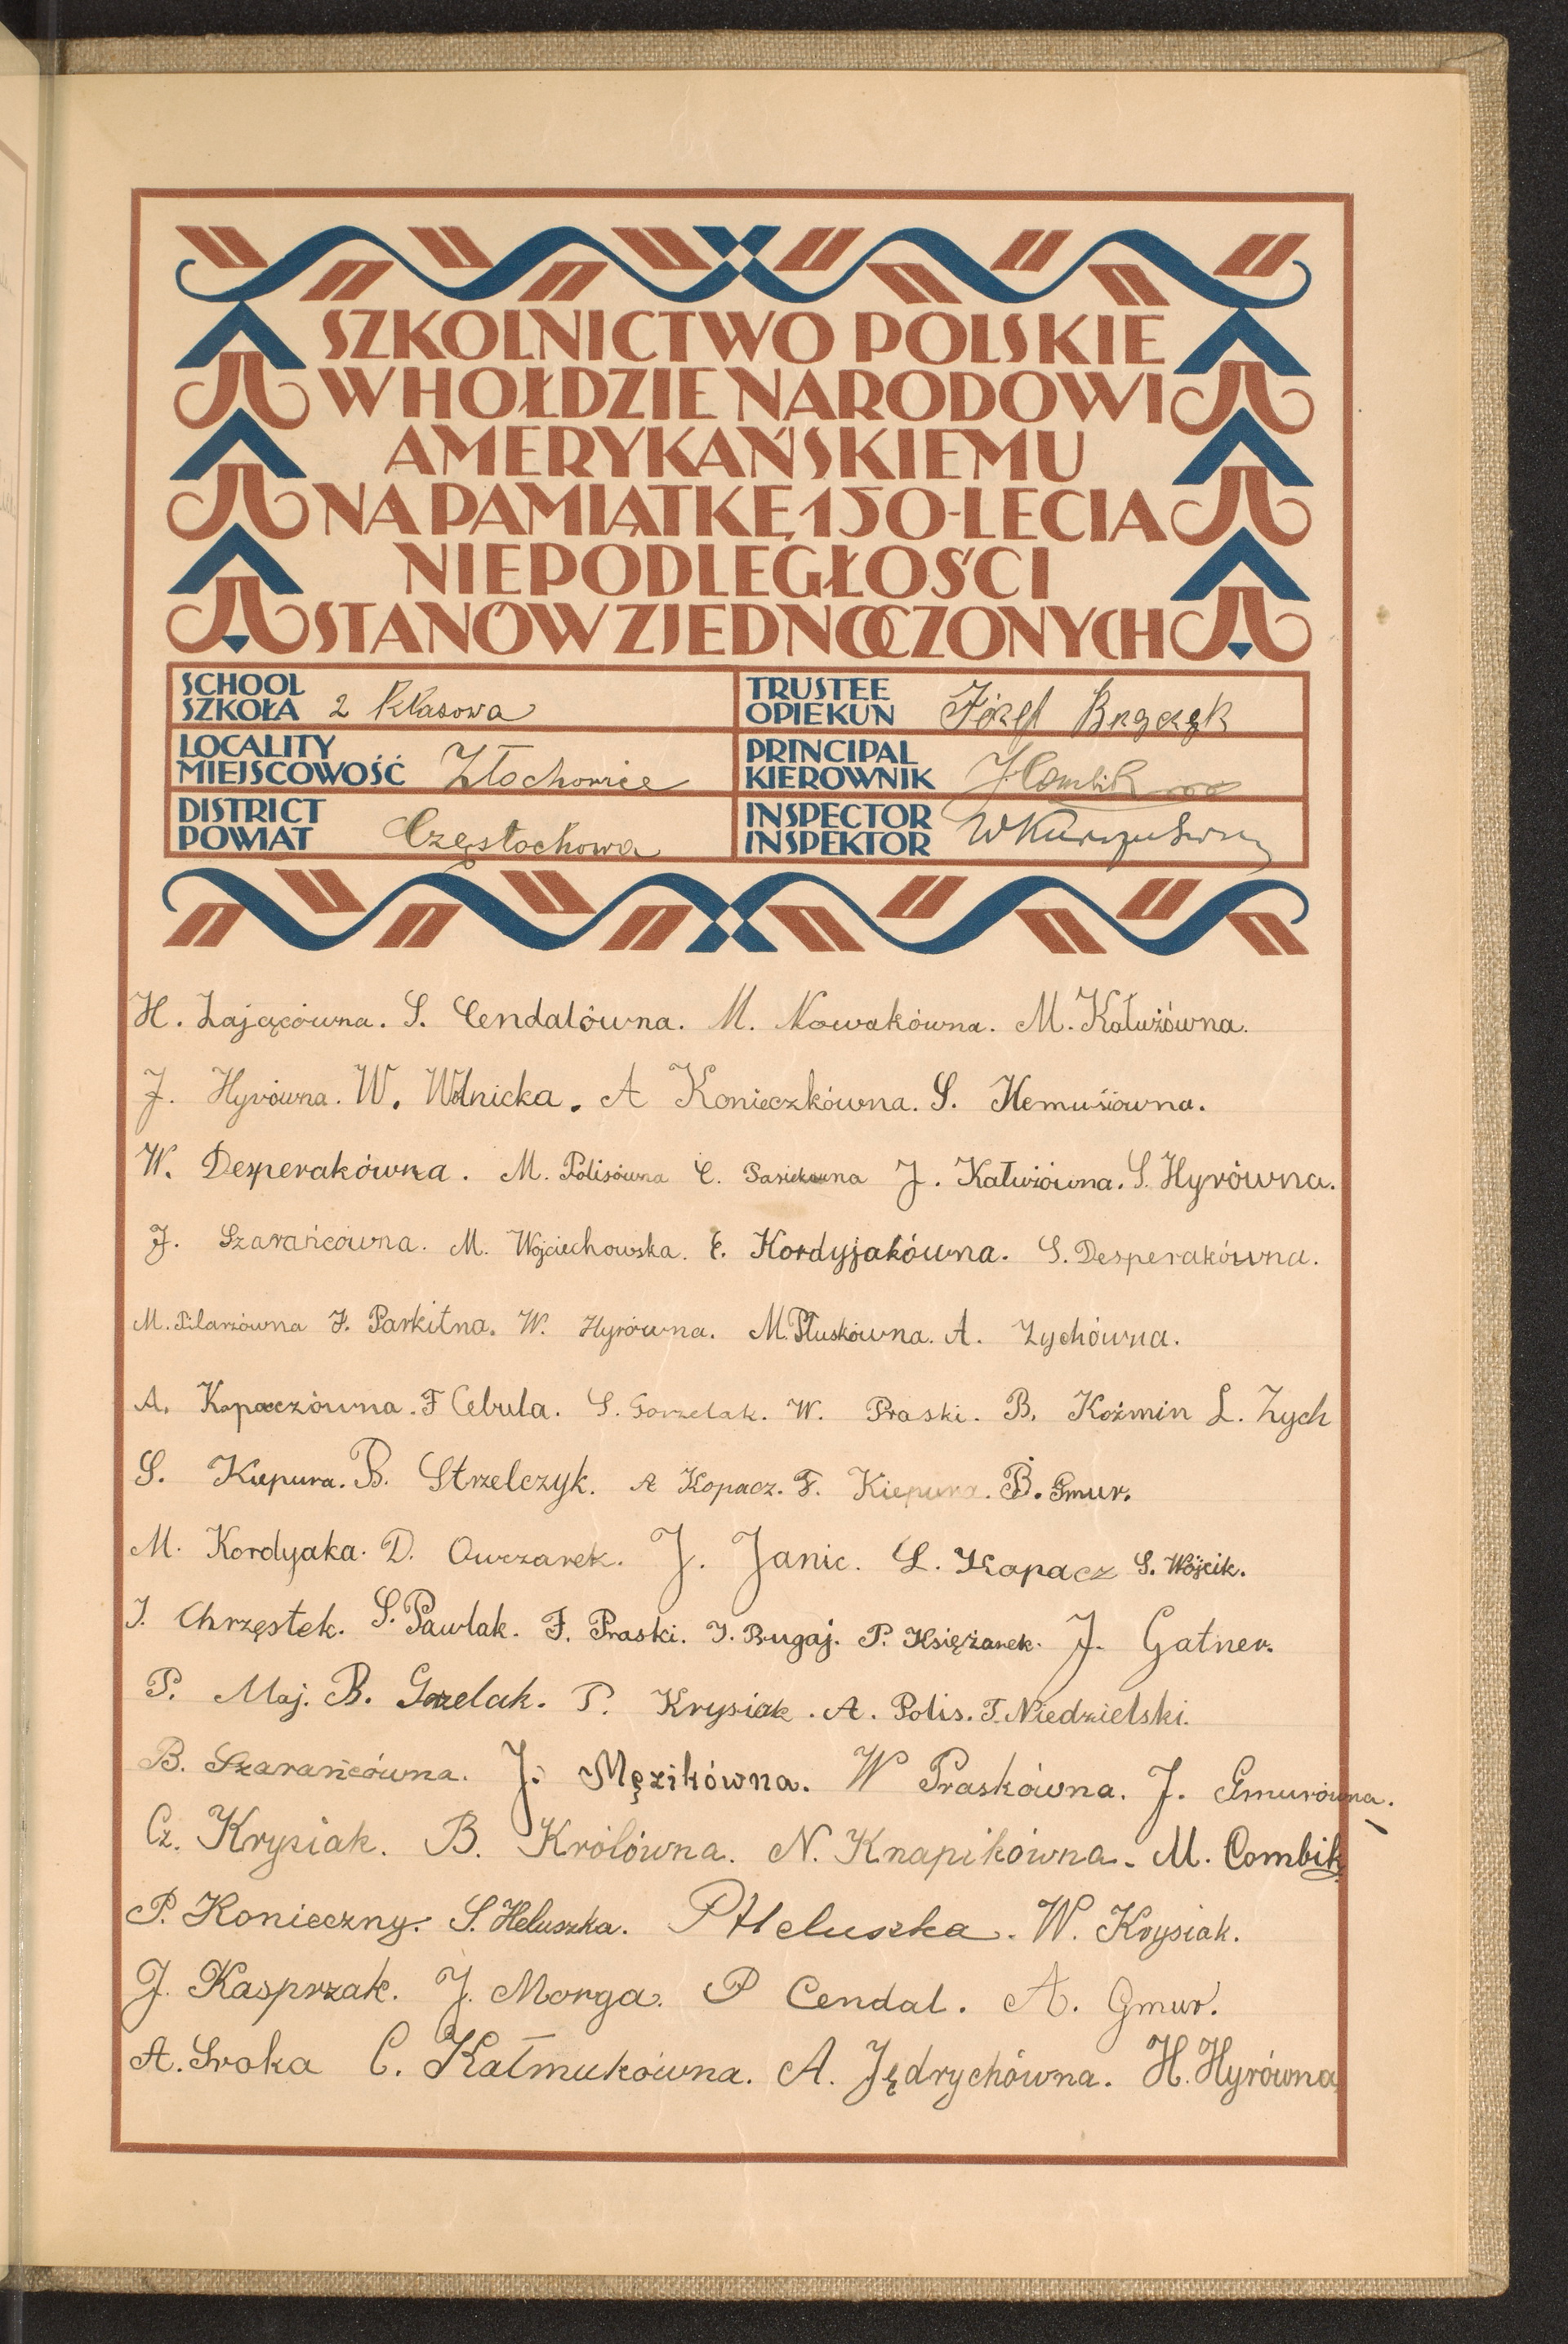 SZKOLNICTWO POLSKIE
W HOŁDZIE NARODOWI
AMERYKAŃSKIEMU
NA PAMIĄTKĘ 150-LECIA
NIEPODLEGŁOŚCI
STANÓW ZJEDNOCZONYCH
SCHOOL
SZKOŁA 2 klasowa
LOCALITY
MIEJSCOWOŚĆ Złochowice
DISTRICT
POWIAT Częstochowa
TRUSTEE
OPIEKUN Józef
PRINCIPAL
KIEROWNIK
INSPECTOR
INSPEKTOR
H. Zającówna. S. Cendalówna. M. Nowakówna. M. Kałużówna.
J. Hyrówna. W. Wolnicka. A Konieczkówna. S. Hemusiówna.
W. Desperakówna. M. Polisówna C. J. Kałużówna. S. Hyrówna.
J. Szarańcówna. M. Wojciechowska. C. Kordyjakówna. S. Desperakówna.
M. Pilarzówna J. Parkitna. W. Hyrówna. M. Płuskówna. A. Zychówna.
A. Kopaczówna. F Cebula. S. Gorzelak. W. Praski. B. Koźmin L. Zych
S. Kiepura. B. Strzelczyk. A Kopacz. F. Kiepura. B. Gmur.
M. Kordyaka. D. Owczarek. J. Janic. L. Kopacz S. Wójcik.
J. Chrzęstek. S. Pawlak. F. Praski. J. Bugaj. P. Księżarek. J. Gatner.
P. Maj. B. Gorzelak. P. Krysiak. A. Polis. T. Niedzielski.
B. Szarańcówna. J. Męzikówna. W Praskówna. J. Gmurówna.
Cz. Krysiak. B. Królówna. N. Knapikówna. M. Combik
P. Konieczny. S. Heluszka. P Heluszka. W. Krysiak.
J. Kasprzak. J. Morga. P Cendal. A. Gmur.
A. Sroka C. Kałmukówna. A. Jędrychówna. H. Hyrówna